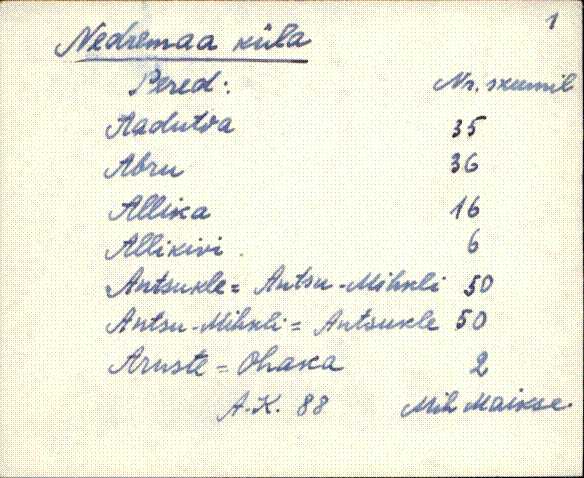 1
Nedremaa küla
Pered: Nr. skeemil
Aadutoa 35
Abru 36
Allika 16
Allikivi 6
Antsukle = Antsu-Mihkli 50
Antsu-Mihkli = Antsukle 50
Aruste = Ohaka 2
A.K. 88 Mih Maikse.